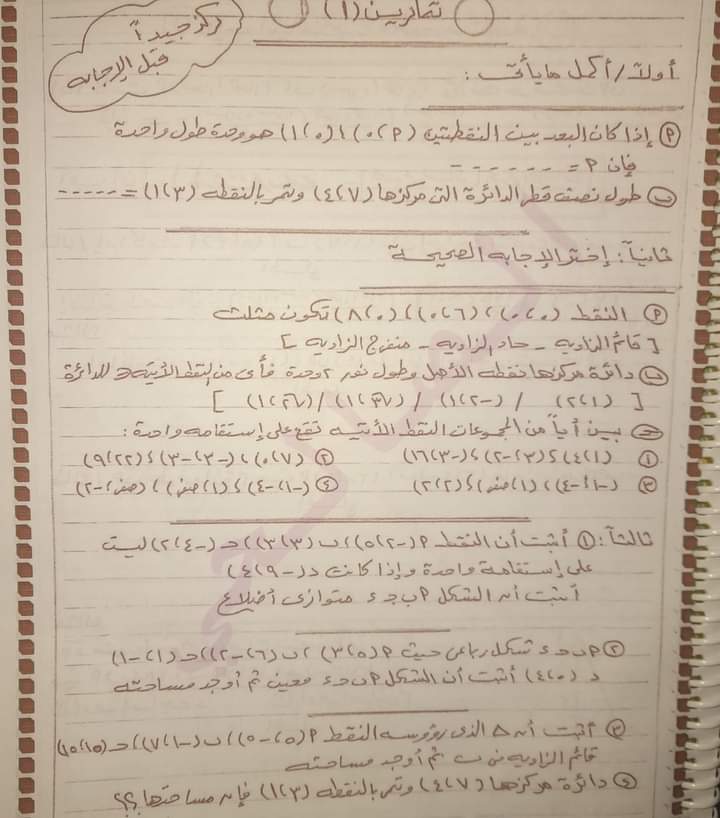 تمارين (١)
ركز جيداً
قبل الإجابه
أولاً / أكمل ما يأتى :
(P) إذا كان البعد بين النقطتين (P ، ٠) ، (٠ ، ١) هو وحدة طول واحدة
فإن P = ------
(ب) طول نصف قطر الدائرة التى مركزها (٧ ، ٤) وتمر بالنقطه (٣ ، ١) = -----
ثانياً : إختر الإجابه الصحيحة
(P) النقط (٠ ، ٠) ، (٦ ، ٠) ، (٠ ، ٨) تكون مثلث
[ قائم الزاويه - حاد الزاويه - منفرج الزاويه ]
(ب) دائرة مركزها نقطه الأصل وطول نصف ٢ وحدة فأى من النقط الأتيه للدائرة
[ (١ ، ٢) / (-٢ ، ١) / (√٣ ، ١) / (√٢ ، ١) ]
(ج) بين أياً من المجموعات النقط الأتيه تقع على إستقامه واحدة :
(١) (١ ، ٤) ، (٣ ، -٢) ، (-٣ ، ١٦)
(٢) (٧ ، ٠) ، (-٣ ، -٣) ، (٢٢ ، ٩)
(٣) (-١ ، -٤) ، (١ ، صفر) ، (٢ ، ٢)
(٤) (-١ ، -٤) ، (١ ، صفر) ، (صفر ، -٢)
ثالثاً : (١) أثبت أن النقط P (-٢ ، ٥) ، ب (٣ ، ٣) ، ج (-٤ ، ٢) ليست
على إستقامة واحدة وإذا كانت د (-٩ ، ٤)
أثبت أن الشكل P ب ج د متوازى أضلاع
(٢) P ب ج د شكل رباعى حيث P (٥ ، ٣) ، ب (٦ ، -٢) ، ج (١ ، -١)
د (٠ ، ٤) أثبت أن الشكل P ب ج د معين ثم أوجد مساحته
(٣) أثبت أن △ الذى رؤوسه النقط P (٥ ، -٥) ، ب (-١ ، ٧) ، ج (١٥ ، ١٥)
قائم الزاويه فى ب ثم أوجد مساحته
(٤) دائرة مركزها (٧ ، ٤) وتمر بالنقطه (٣ ، ١) فإن مساحتها ؟؟